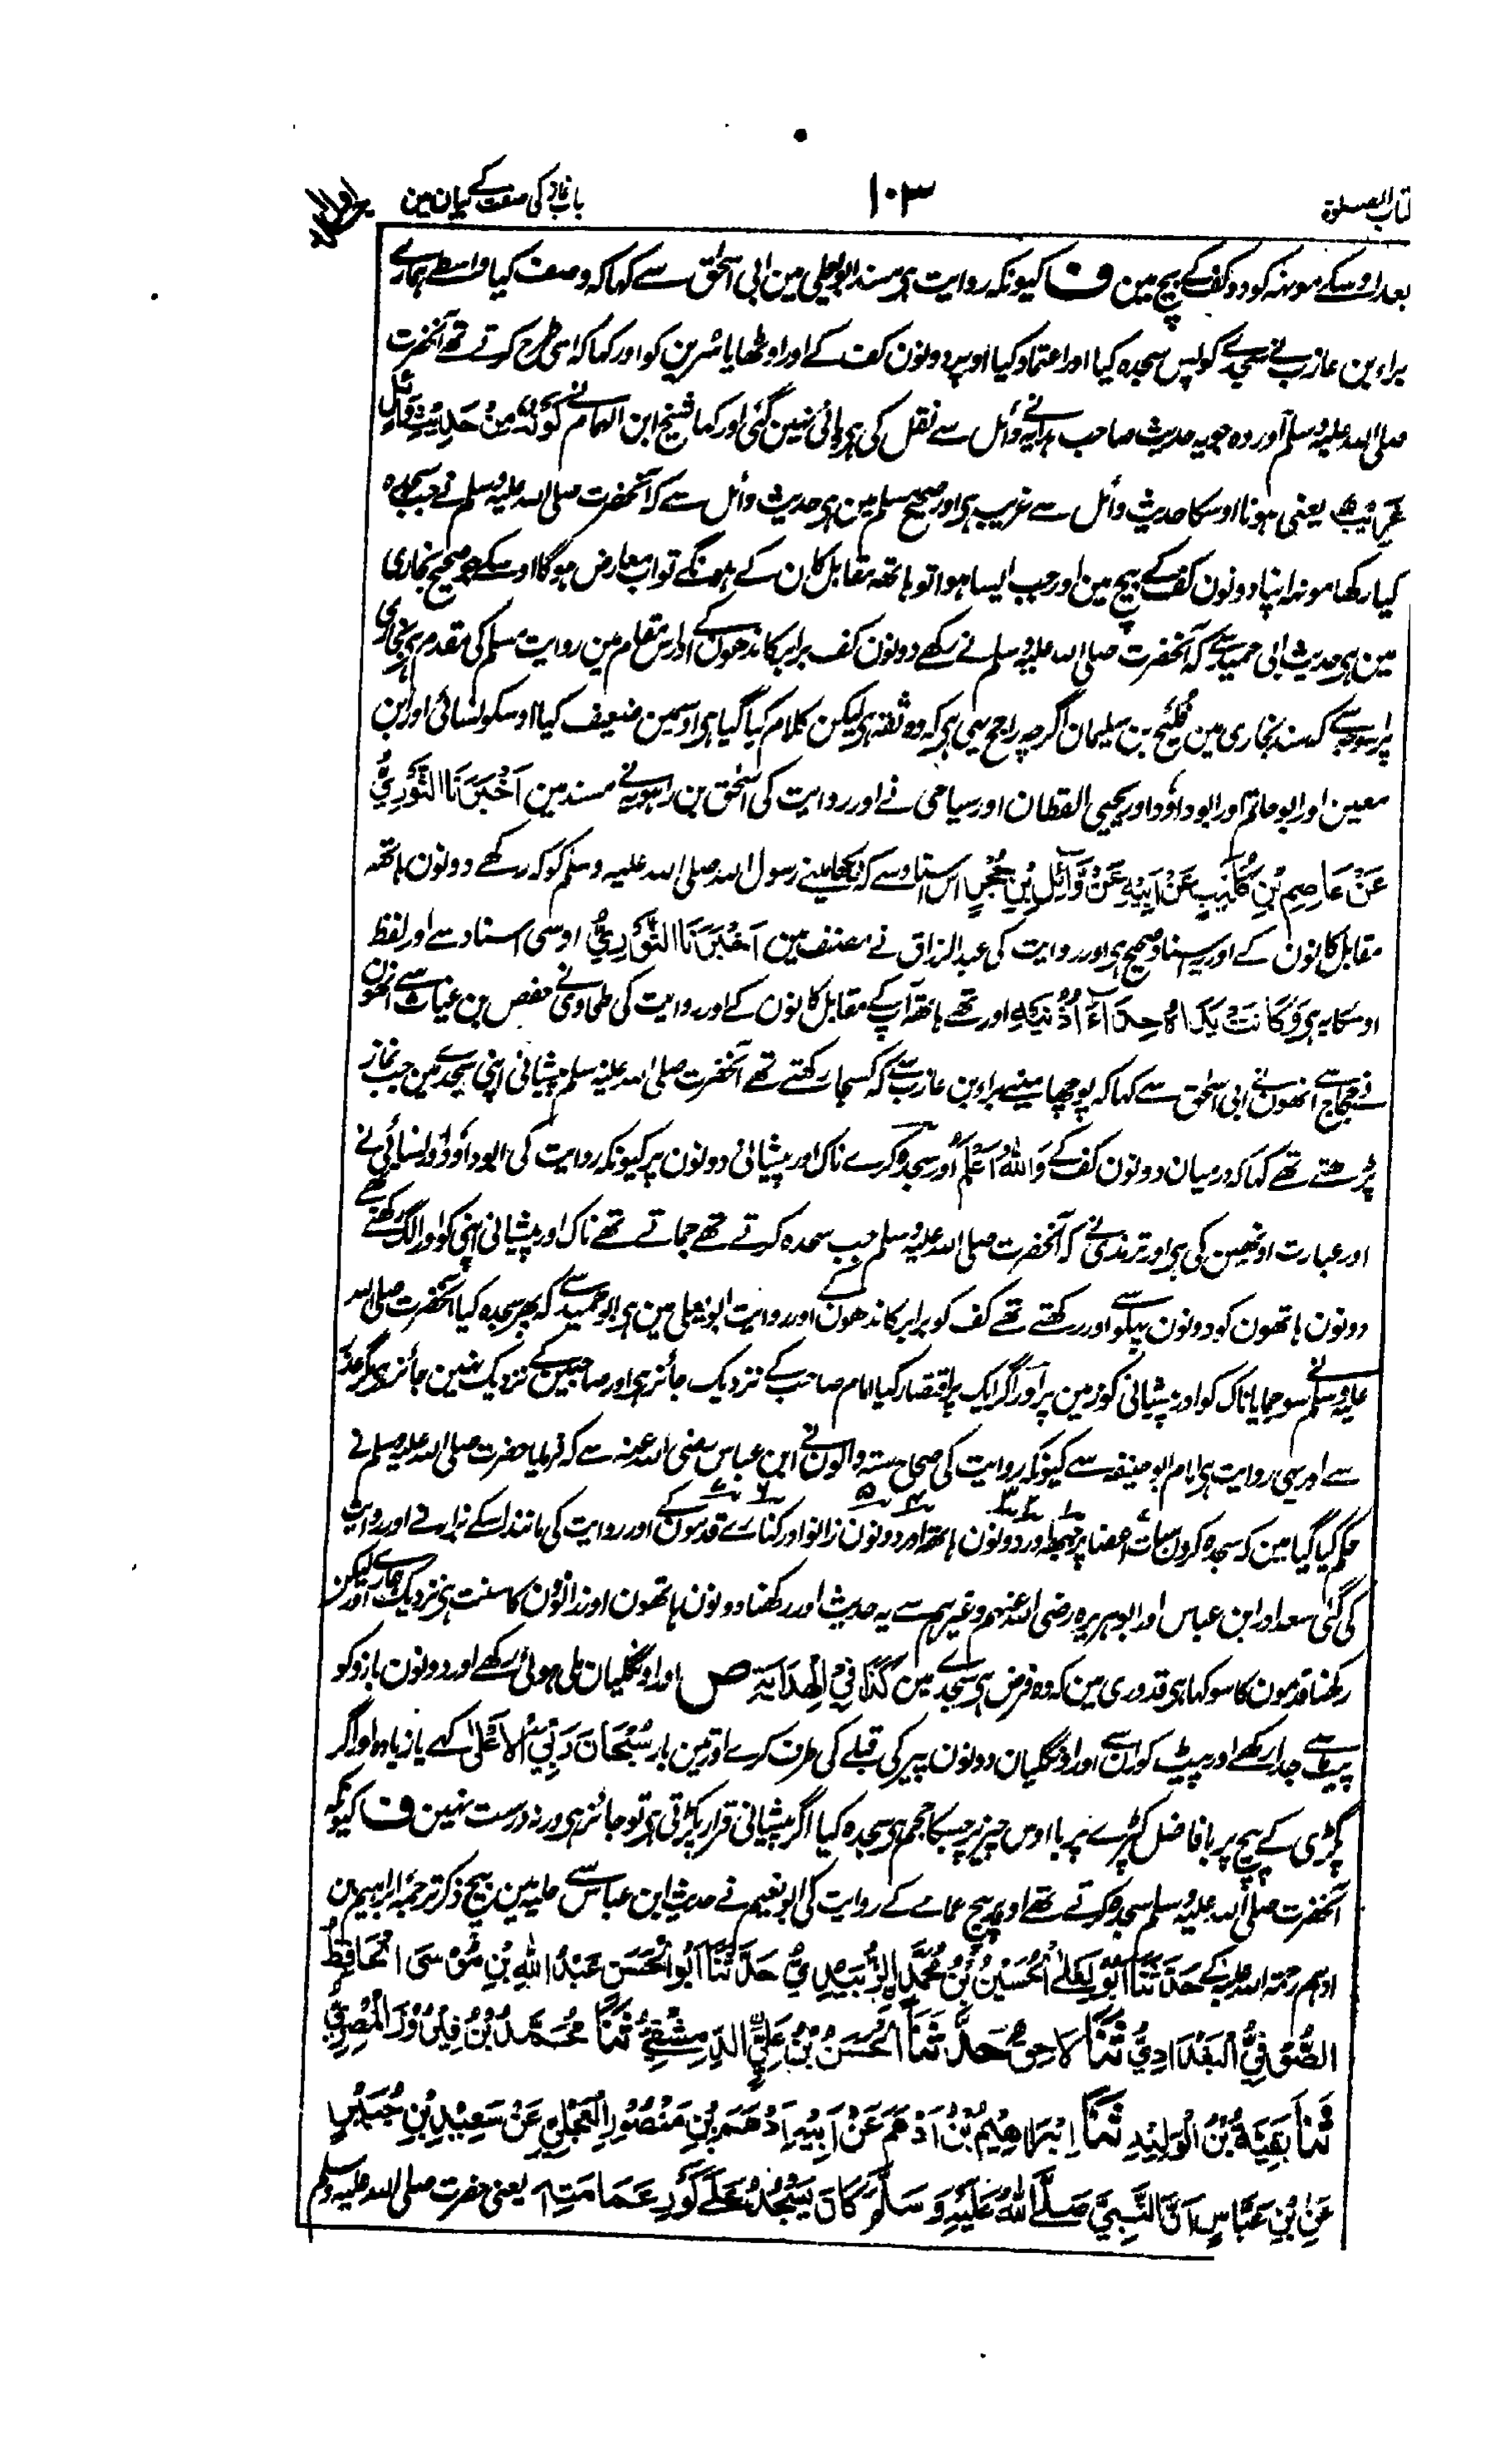 کتاب الصلوٰۃ
۱۰۳
باب نماز کی صفت کے بیان مین
بعد اوسکے مونہہ کو دو کف کے بیچ مین ف کیونکہ روایت ہی مسند ابو یعلی مین ابی اسحٰق سے کہا کہ وصف کیا واسطے ہمارے
براء بن عازب نے سجدے کو پس سجدہ کیا اور اعتماد کیا اوپر دونون کف کے اور اوٹھایا سُرین کو اور کہا کہ اسی طرح کرتے تھے آنحضرت
صلی اللہ علیہ وسلم اور وہ جو یہ حدیث صاحب ہدایہ نے وائل سے نقل کی ہی پائی نہین گئی اور کہا شیخ ابن الہمام نے کَوْنُہٗ مِنْ حَدِیْثِ وَائِلٍ
غَرِیْبٌ یعنی ہونا اوسکا حدیث وائل سے غریب ہی اور صحیح مسلم مین ہی حدیث وائل سے کہ آنحضرت صلی اللہ علیہ وسلم نے جب سجدہ
کیا رکھا مونہہ اپنا دونون کف کے بیچ مین اور جب ایسا ہوا تو ہاتھ مقابل کان کے ہونگے تو اب معارض ہوگا اوسکے جو صحیح بخاری
مین ہی حدیث ابی حمید سے کہ آنحضرت صلی اللہ علیہ وسلم نے رکھے دونون کف برابر کاندھون کے اور اس مقام مین روایت مسلم کی مقدم ہی بخاری
پر اسوجہ سے کہ سند بخاری مین فُلَیْح بن سلیمان اگرچہ راجح یہی ہی کہ وہ ثقہ ہی لیکن کلام کیا گیا ہی اوسمین ضعیف کیا اوسکو نسائی اور ابن
معین اور ابو حاتم اور ابو داؤد اور یحیی القطان اور ساجی نے اور روایت کی اسحٰق بن راہویہ نے مسند مین اَخْبَرَنَا الثَّوْرِیُّ
عَنْ عَاصِمِ بْنِ کُلَیْبٍ عَنْ اَبِیْہِ عَنْ وَّائِلِ بْنِ حُجْرٍ اس اسناد سے کہ دیکھا مینے رسول اللہ صلی اللہ علیہ وسلم کو کہ رکھے دونون ہاتھ
مقابل کانون کے اور یہ اسناد صحیح ہی اور روایت کی عبد الرزاق نے مصنف مین اَخْبَرَنَا الثَّوْرِیُّ اوسی اسناد سے اور لفظ
اوسکا یہ ہی وَکَانَتْ یَدَاہُ حِذَآءَ اُذُنَیْہِ اور تھے ہاتھ آپ کے مقابل کانون کے اور روایت کی طحاوی نے حفص بن غیاث سے اونھون
نے حجاج سے انھون نے ابی اسحٰق سے کہا کہ پوچھا مینے براء بن عازب سے کہ کس جا رکھتے تھے آنحضرت صلی اللہ علیہ وسلم پیشانی اپنی سجدے مین جب نماز
پڑھتے تھے کہا کہ درمیان دونون کف کے وَاللہُ اَعْلَمُ اور سجدہ کرے ناک اور پیشانی دونون پر کیونکہ روایت کی ابو داؤد اور نسائی نے
اور عبارت اونھین کی ہی اور ترمذی نے کہ آنحضرت صلی اللہ علیہ وسلم جب سجدہ کرتے تھے جماتے تھے ناک اور پیشانی اپنی کو اور الگ رکھتے تھے
دونون ہاتھون کو دونون پہلو سے اور رکھتے تھے کف کو برابر کاندھون کے اور روایت ابو یعلی مین ہی ابو حمید سے کہ پھر سجدہ کیا آنحضرت صلی اللہ
علیہ وسلم نے سو جمایا ناک کو اور پیشانی کو زمین پر اور اگر ایک پر اقتصار کیا امام صاحب کے نزدیک جائز ہی اور صاحبین کے نزدیک نہین جائز ہی مگر عذر
سے اور یہی روایت ہی امام ابو حنیفہ سے کیونکہ روایت کی صحاح ستہ والون نے ابن عباس رضی اللہ عنہ سے کہ فرمایا حضرت صلی اللہ علیہ وسلم نے
حکم کیا گیا مین کہ سجدہ کرون سات اعضا پر جبہہ اور دونون ہاتھ اور دونون زانو اور کنارے قدمون کے اور روایت کی مانند اسکے بزار نے اور روایت
کی گئی سعد اور ابن عباس اور ابو ہریرہ رضی اللہ عنہم وغیرہم سے یہ حدیث اور رکھنا دونون ہاتھون اور زانوون کا سنت ہی نزدیک ہمارے اور لیکن
رکھنا قدمون کا سو کہا ہی قدوری مین کہ وہ فرض ہی سجدے مین کَذَا فِی الْہِدَایَۃِ ص اور اونگلیان ملی ہوئی رکھے اور دونون بازو کو
پیٹ سے جدا رکھے اور پیٹ کو ران سے اور اونگلیان دونون پیر کی قبلے کی طرف کرے اور تین بار سُبْحَانَ رَبِّیَ الْاَعْلٰی کہے یا زیادہ اور اگر
پگڑی کے پیچ پر یا فاضل کپڑے پر یا اوس چیز پر جسکا حجم ہی سجدہ کیا اگر پیشانی قرار پکڑتی ہی تو جائز ہی ورنہ درست نہین ف کیونکہ
آنحضرت صلی اللہ علیہ وسلم سجدہ کرتے تھے اوپر پیچ عمامے کے روایت کی ابو نعیم نے حدیث ابن عباس سے حلیہ مین بیچ ذکر ترجمہ ابراہیم بن
ادہم رحمۃ اللہ علیہ کے حَدَّثَنَا اَبُوْ یَعْلَی الْحُسَیْنُ بْنُ مُحَمَّدٍ الزُّبَیْرِیُّ حَدَّثَنَا اَبُو الْحَسَنِ عَبْدُ اللہِ بْنِ مُوْسَی الْحَافِظُ
الصُّوْفِیُّ الْبَغْدَادِیُّ ثَنَا لَاحِقٌ حَدَّثَنَا الْحَسَنُ بْنُ عَلِیٍّ الدِّمِشْقِیُّ ثَنَا مُحَمَّدُ بْنُ فِیْرُوْزَ الْمِصْرِیُّ
ثَنَا بَقِیَّۃُ بْنُ الْوَلِیْدِ ثَنَا اِبْرَاھِیْمُ بْنُ اَدْھَمَ عَنْ اَبِیْہِ اَدْھَمَ بْنِ مَنْصُوْرِ الْعِجْلِیِّ عَنْ سَعِیْدِ بْنِ جُبَیْرٍ
عَنِ ابْنِ عَبَّاسٍ اَنَّ النَّبِیَّ صَلَّی اللہُ عَلَیْہِ وَسَلَّمَ کَانَ یَسْجُدُ عَلٰی کَوْرِ عِمَامَتِہٖ یعنی حضرت صلی اللہ علیہ وسلم